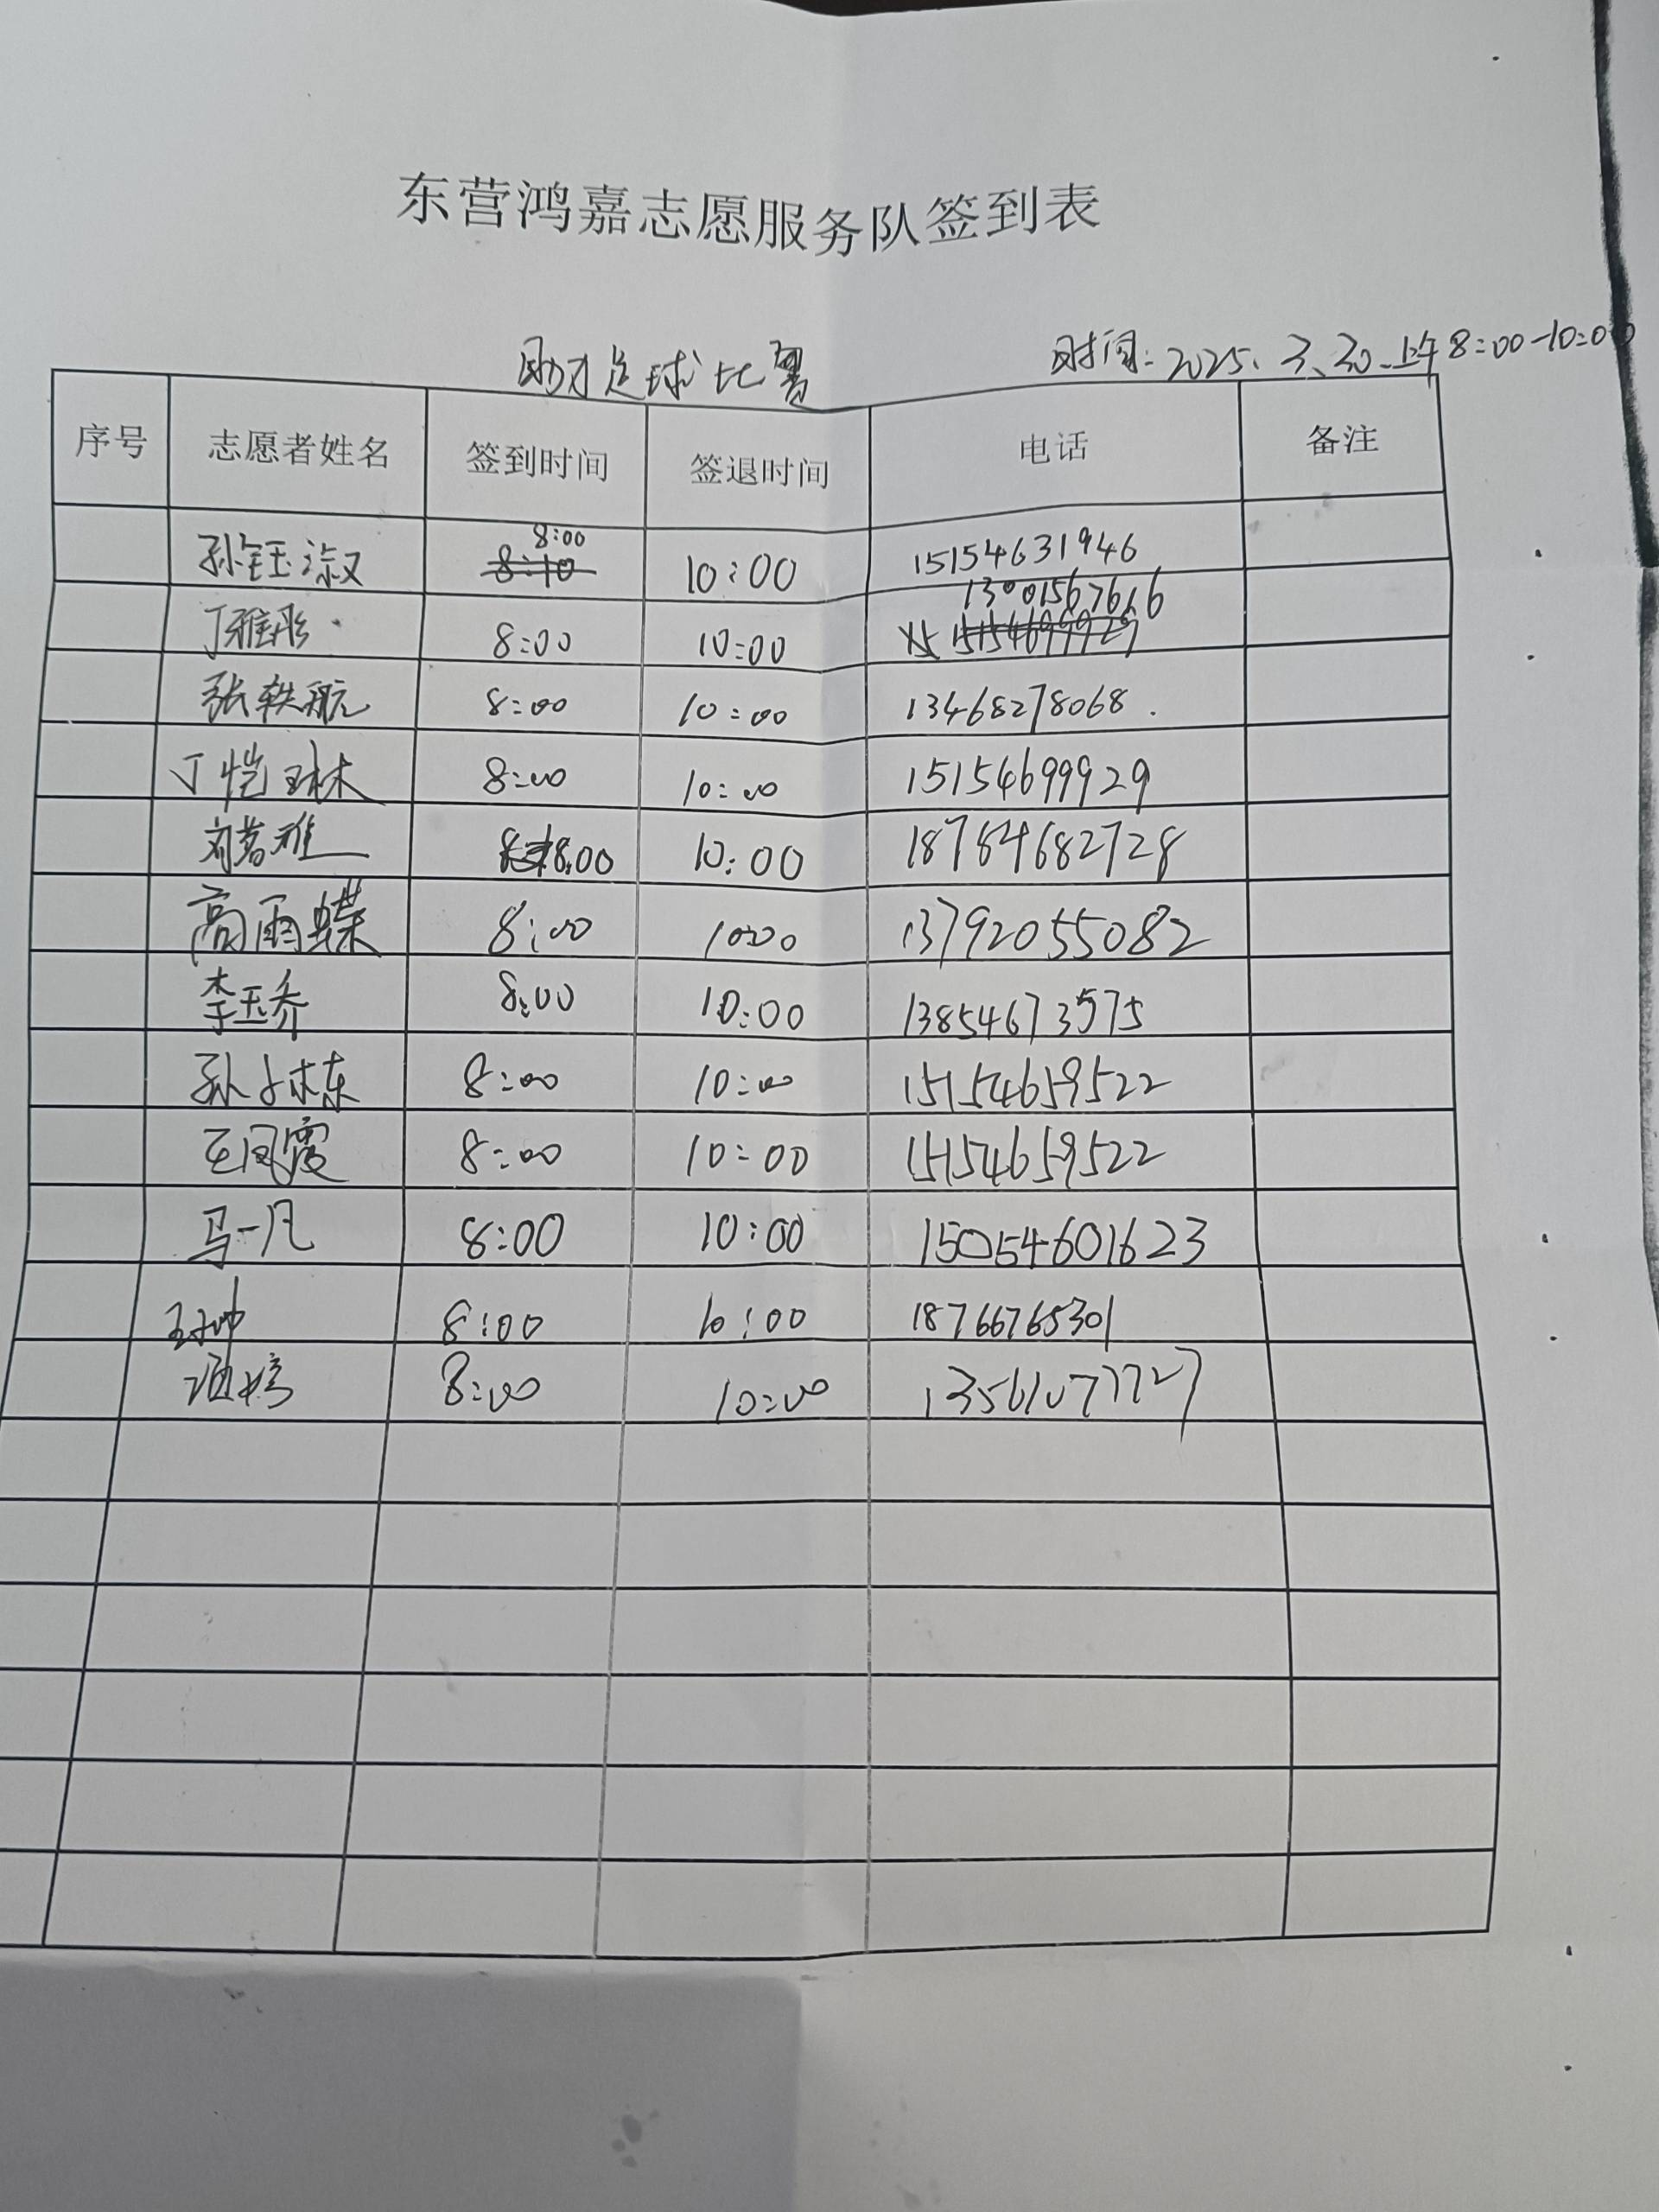 东营鸿嘉志愿服务队签到表
助力足球比赛 时间：2025、3、30、上午8:00-10:00
序号 志愿者姓名 签到时间 签退时间 电话 备注
孙钰淑 8:00 10:00 15154631946
丁雅彤 8:00 10:00 13001567616
张轶航 8:00 10:00 13468278068
丁恺琳 8:00 10:00 15154699929
刘若雅 8:00 10:00 18784682728
高雨蝶 8:00 10:00 13792055082
李玉乔 8:00 10:00 13854673575
孙 8:00 10:00 15154659522
王凤霞 8:00 10:00 15154659522
马一凡 8:00 10:00 15054601623
8:00 10:00 18766765301
8:00 10:00